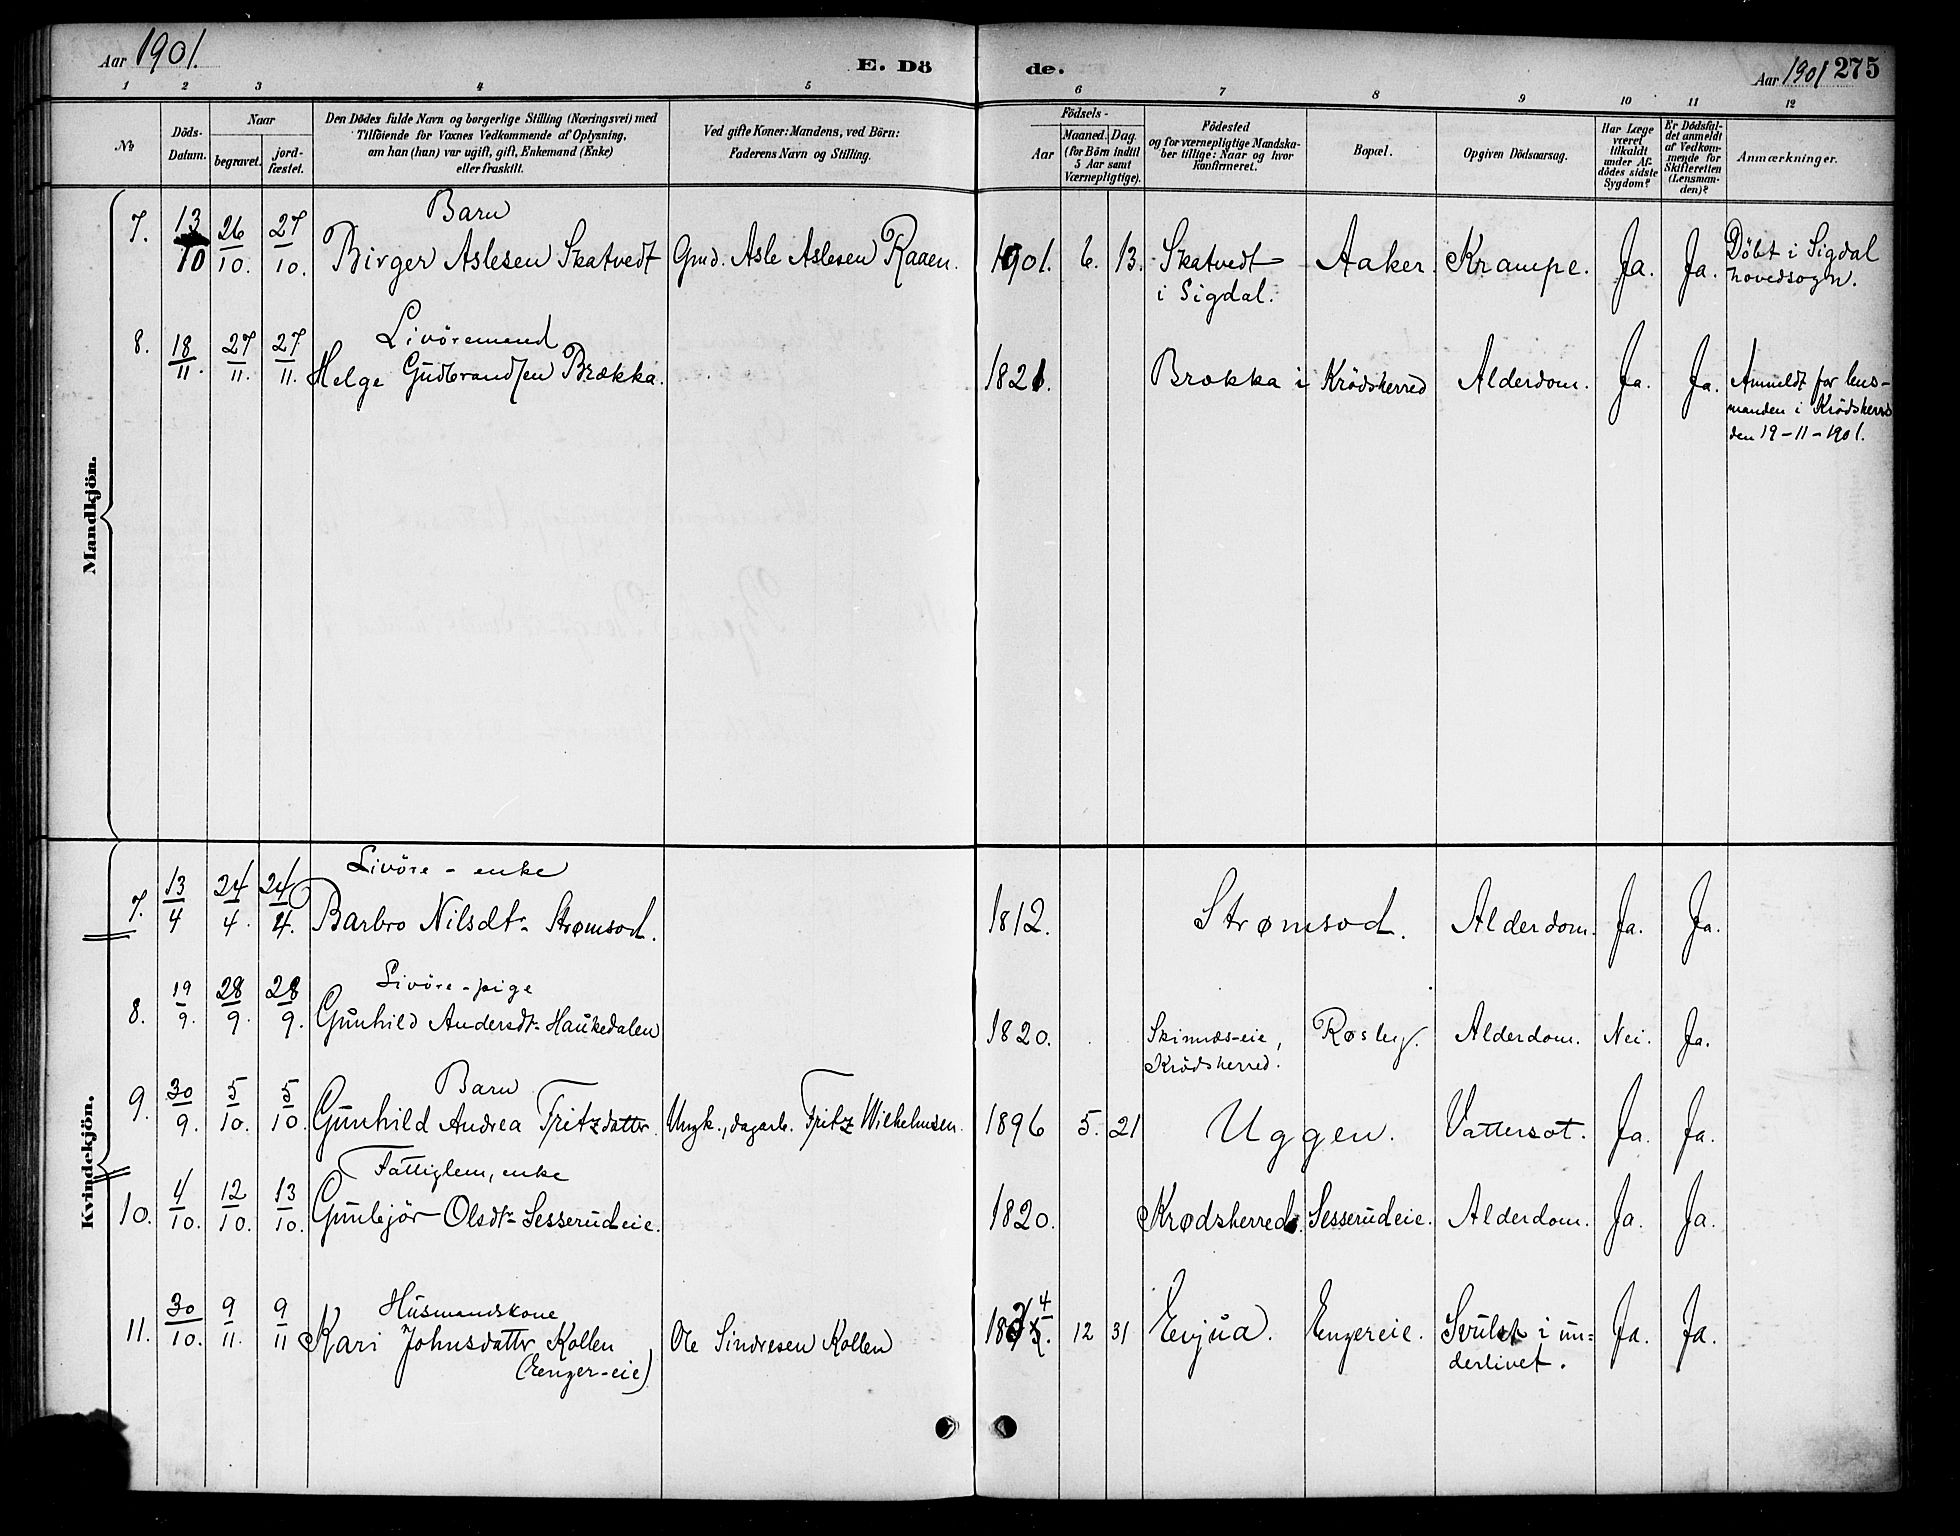 Aar 1901.
E. Dö
de.
Aar 1901 275
1 2 3 4 5 6 7 8 9 10 11 12
№
Döds-
Datum.
Naar
begravet.
jord-
fæstet.
Den Dödes fulde Navn og borgerlige Stilling (Næringsvei) med
Tilföiende for Voxnes Vedkommende af Oplysning,
om han (hun) var ugift, gift, Enkemand (Enke)
eller fraskilt.
Ved gifte Koner: Mandens, ved Börn:
Faderens Navn og Stilling.
Födsels-
Aar
Maaned. Dag.
(for Börn indtil
5 Aar samt
Værnepligtige).
Födested
og for værnepligtige Mandska-
ber tillige: Naar og hvor
konfirmeret.
Bopæl.
Opgiven Dödsaarsag.
Har Læge
været
tilkaldt
under Af-
dödes sidste
Sygdom?
Er Dödsfal-
det anmeldt
af Vedkom-
mende for
Skifteretten
(Lensman-
den)?
Anmærkninger.
Mandkjön.
Barn
7. 13/10 26/10. 27/10. Birger Aslesen Skatvedt Gmd. Asle Aslesen Raaen. 1901. 6. 13. Skatvedt Aaker. Krampe. Ja. Ja. Döbt i Sigdal
i Sigdal. hovedsogn.
Livöremand
8. 18/11. 27/11. 27/11. Helge Gudbrandsen Brækka. 1821. Brækka i Krödsherred Alderdom. Ja. Ja. Anmeldt for lens-
manden i Krödsherred
den 19-11-1901.
Kvindekjön.
Livöre-enke
7. 13/4 24/4. 24/4. Barbro Nilsdtr. Strømsod. 1812. Strømsod. Alderdom. Ja. Ja.
Livöre-pige
8. 19/9. 28/9. 28/9. Gunhild Andersdtr. Haukedalen 1820. Skinnæs-eie, Røsby. Alderdom. Nei. Ja.
Krödsherred.
Barn
9. 30/9. 5/10. 5/10. Gunhild Andrea Fritzdattr. Ungk., dagarb. Fritz Wilhelmsen. 1896 5. 21 Uggen. Vattersot. Ja. Ja.
Fattiglem, enke
10. 4/10. 12/10. 13/10. Gunbjör Olsdtr. Sesserudeie. 1820. Krødsherred. Sesserudeie. Alderdom. Ja. Ja.
Husmandskone
11. 30/10. 9/11. 9/11 Kari Johnsdattr Kollen Ole Sindresen Kollen 12 31 Evjua. Engereie. Svulst i un-
(Enger-eie) derlivet. Ja. Ja.